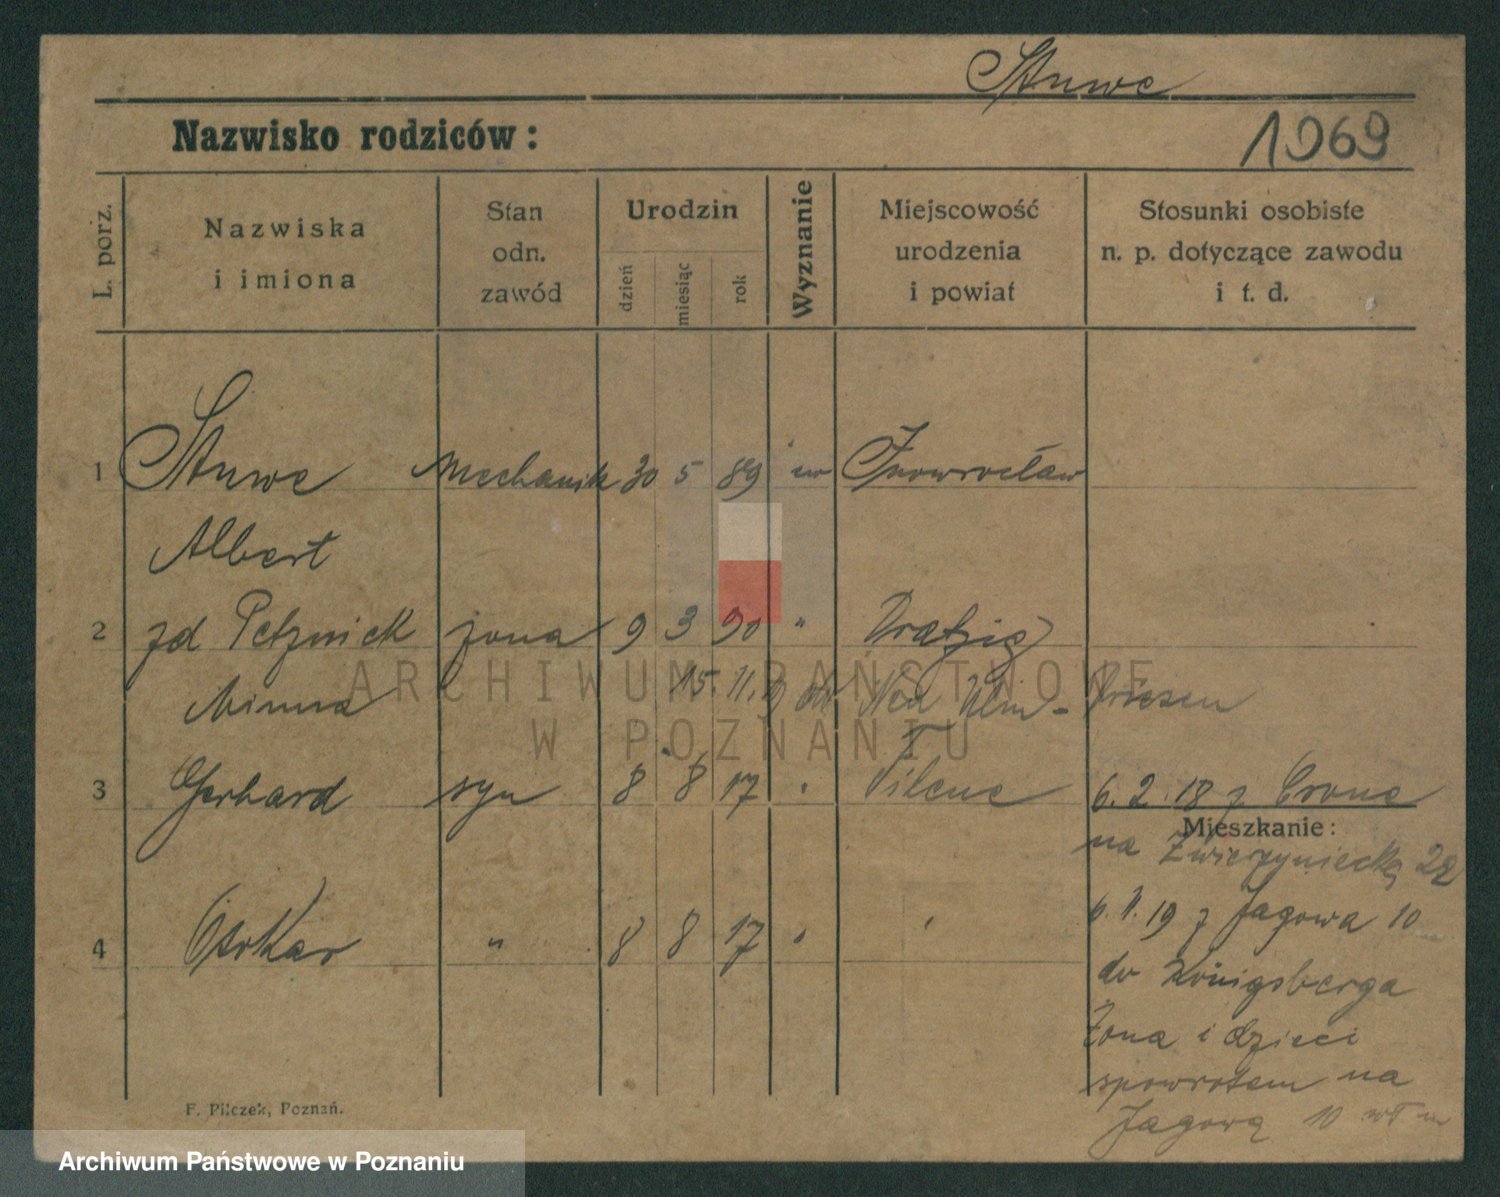 Stuwe
Nazwisko rodziców:
1969
L. porż.
Nazwiska
i imiona
Stan
odn.
zawód
Urodzin
dzień
miesiąc
rok
Wyznanie
Miejscowość
urodzenia
i powiat
Stosunki osobiste
n. p. dotyczące zawodu
i t. d.
1 Stuwe Mechanik 30 5 89 ew Inowrocław
Albert
2 zd Petznick żona 9 3 90 " Dratzig
Minna 15. 11. Neu Ulm - Driesen
3 Gerhard syn 8 8 17 Filene 6. 2. 18 z Crone
Mieszkanie:
na Zwierzyniecką 22
6. 11. 19 z Jagowa 10
4 Oskar " 8 8 17
do Königsberga
Żona i dzieci
spowrotem na
Jagową 10
F. Pilczek, Poznań.
ARCHIWUM PAŃSTWOWE
W POZNANIU
Archiwum Państwowe w Poznaniu